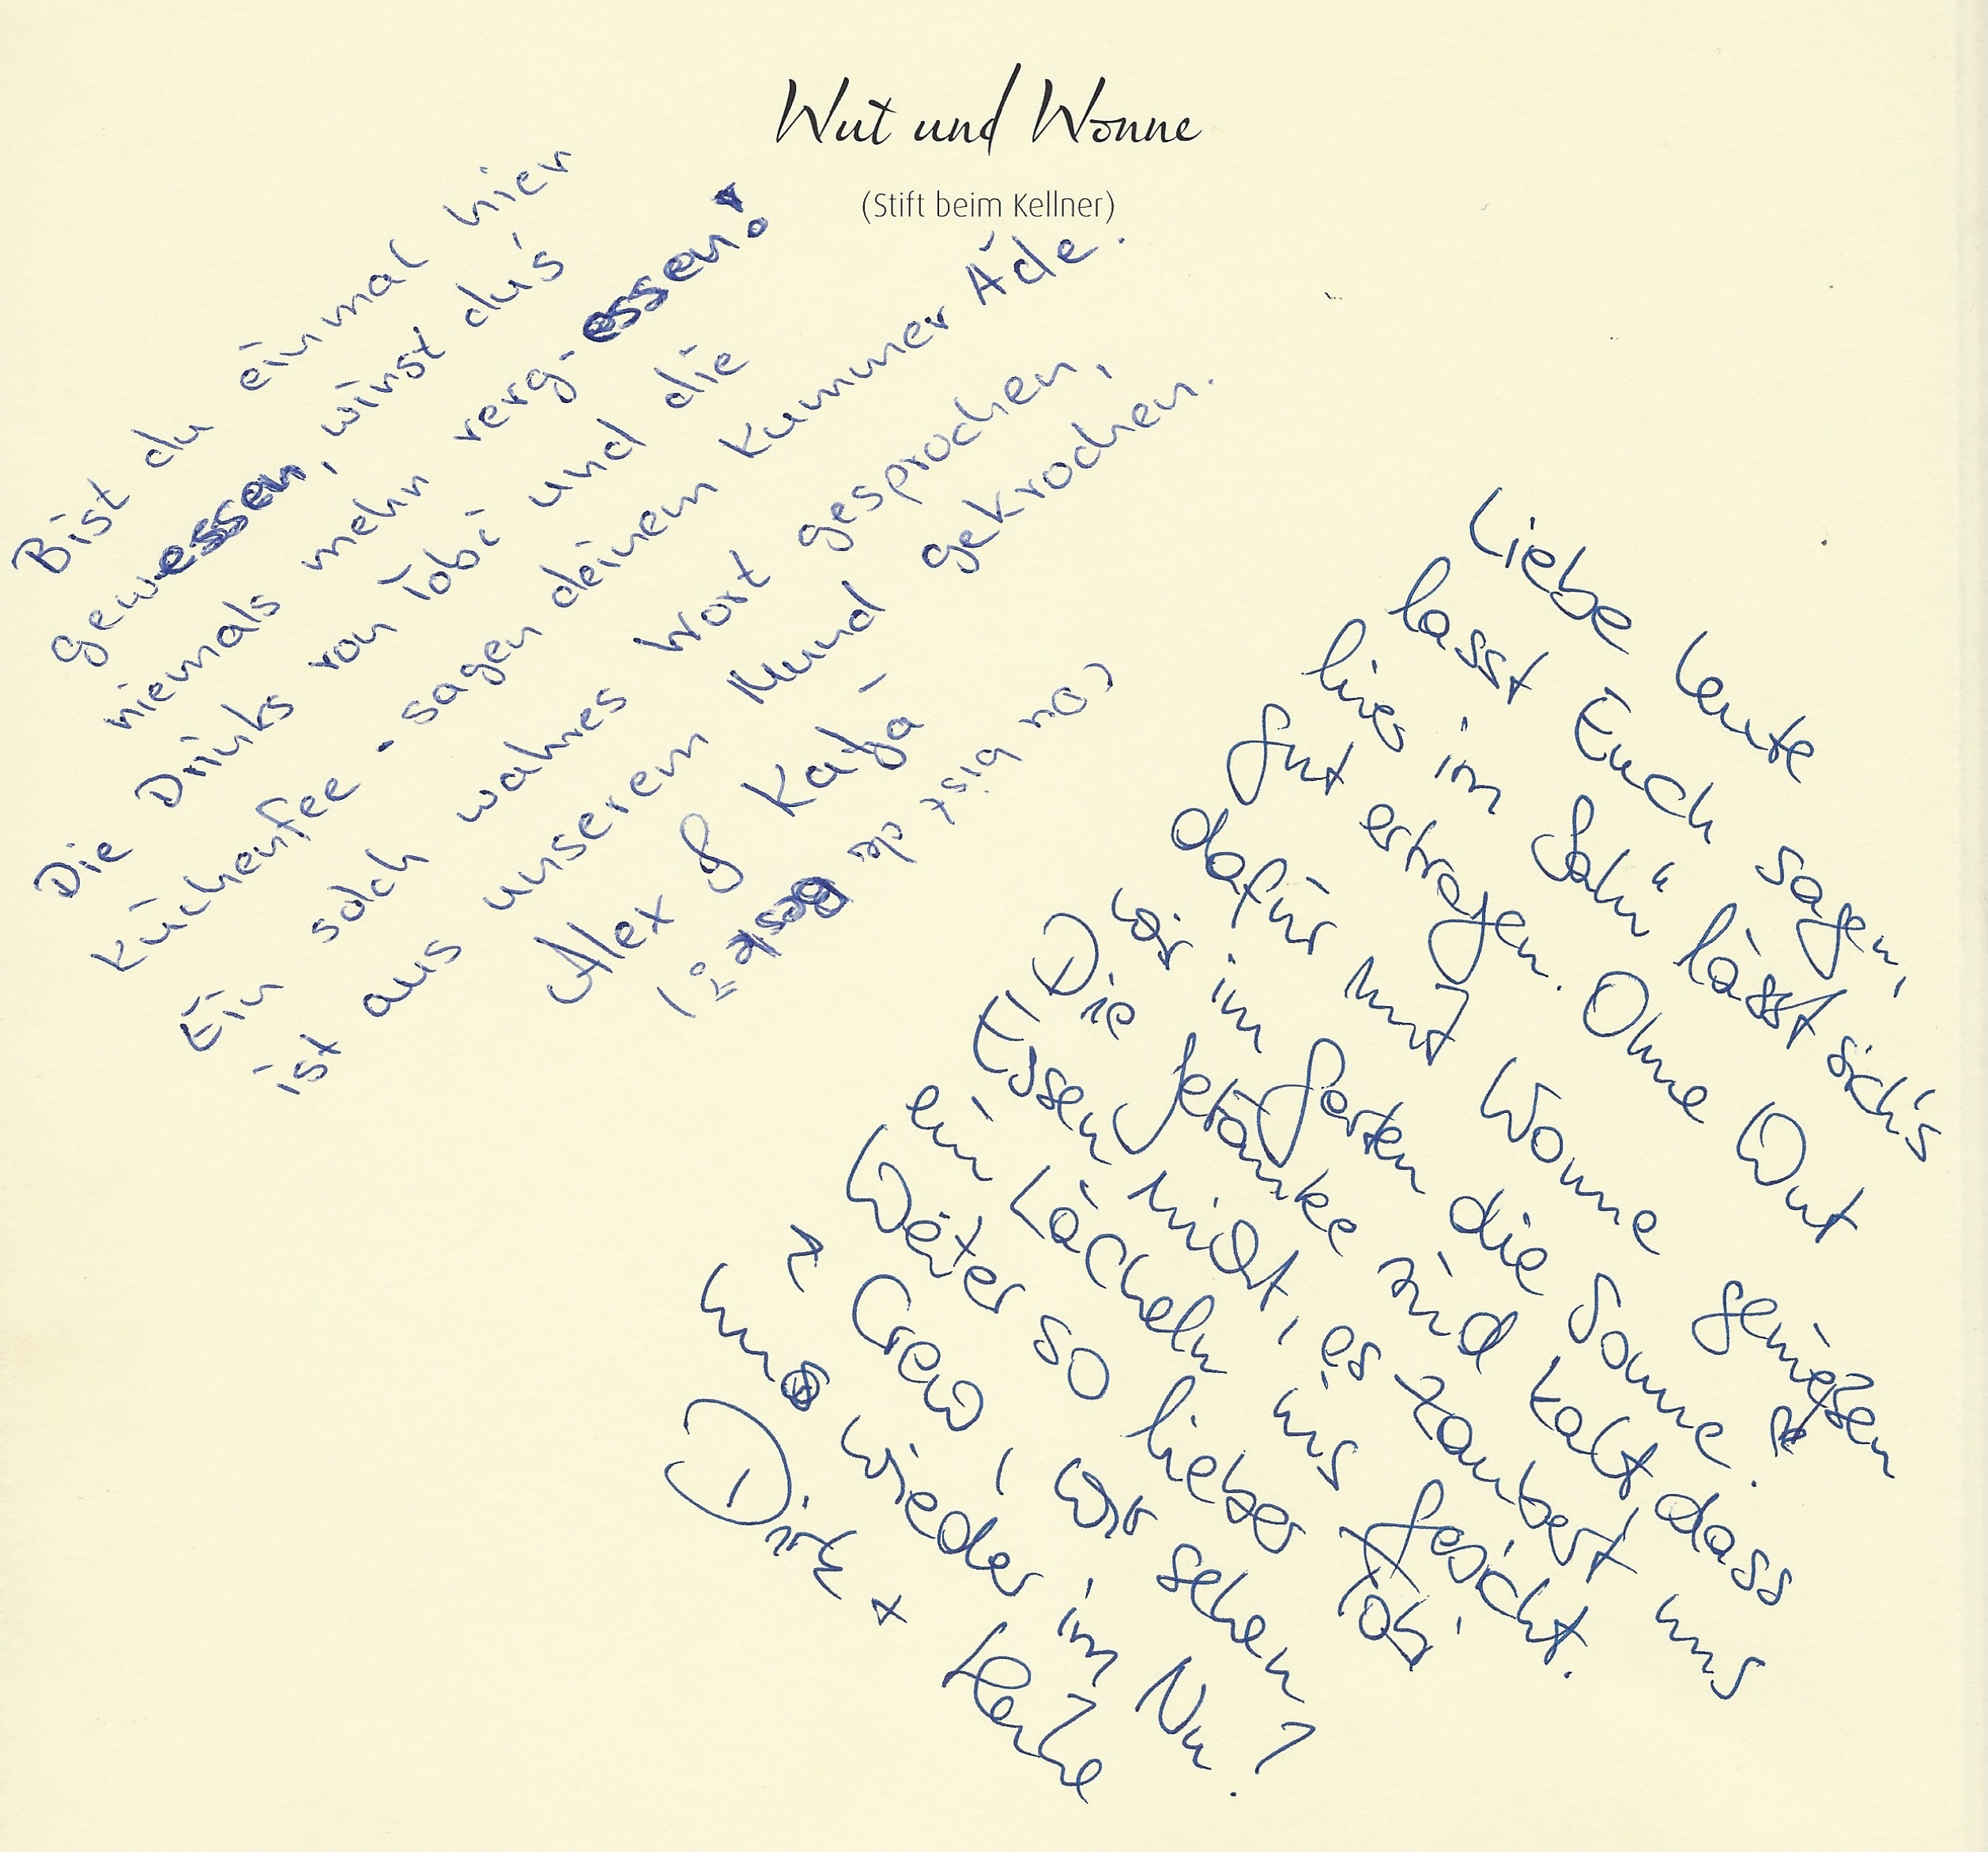 Wut und Wonne
(Stift beim Kellner)
Bist du einmal hier
gewessen, wirst du's
niemals mehr verg-essen!
Die Drinks von Tobi und die
Küchenfee - sagen deinem Kummer Ade.
Ein solch wahres Wort gesprochen,
ist aus unserem Mund gekrochen.
Alex & Kaja
Liebe Leute
lasst Euch sagen,
hier im Sohn" lässt sich's
gut ertragen. Ohne Wut
dafür mit Wonne genießen
wir im Garten die Sonne.
Die Getränke sind kalt, dass
Essen nicht, es zaubert uns
ein Lächeln ins Gesicht.
Weiter so lieber Tobi
+ Crew, wir sehen
uns wieder im Nu!
Dirk + Heike